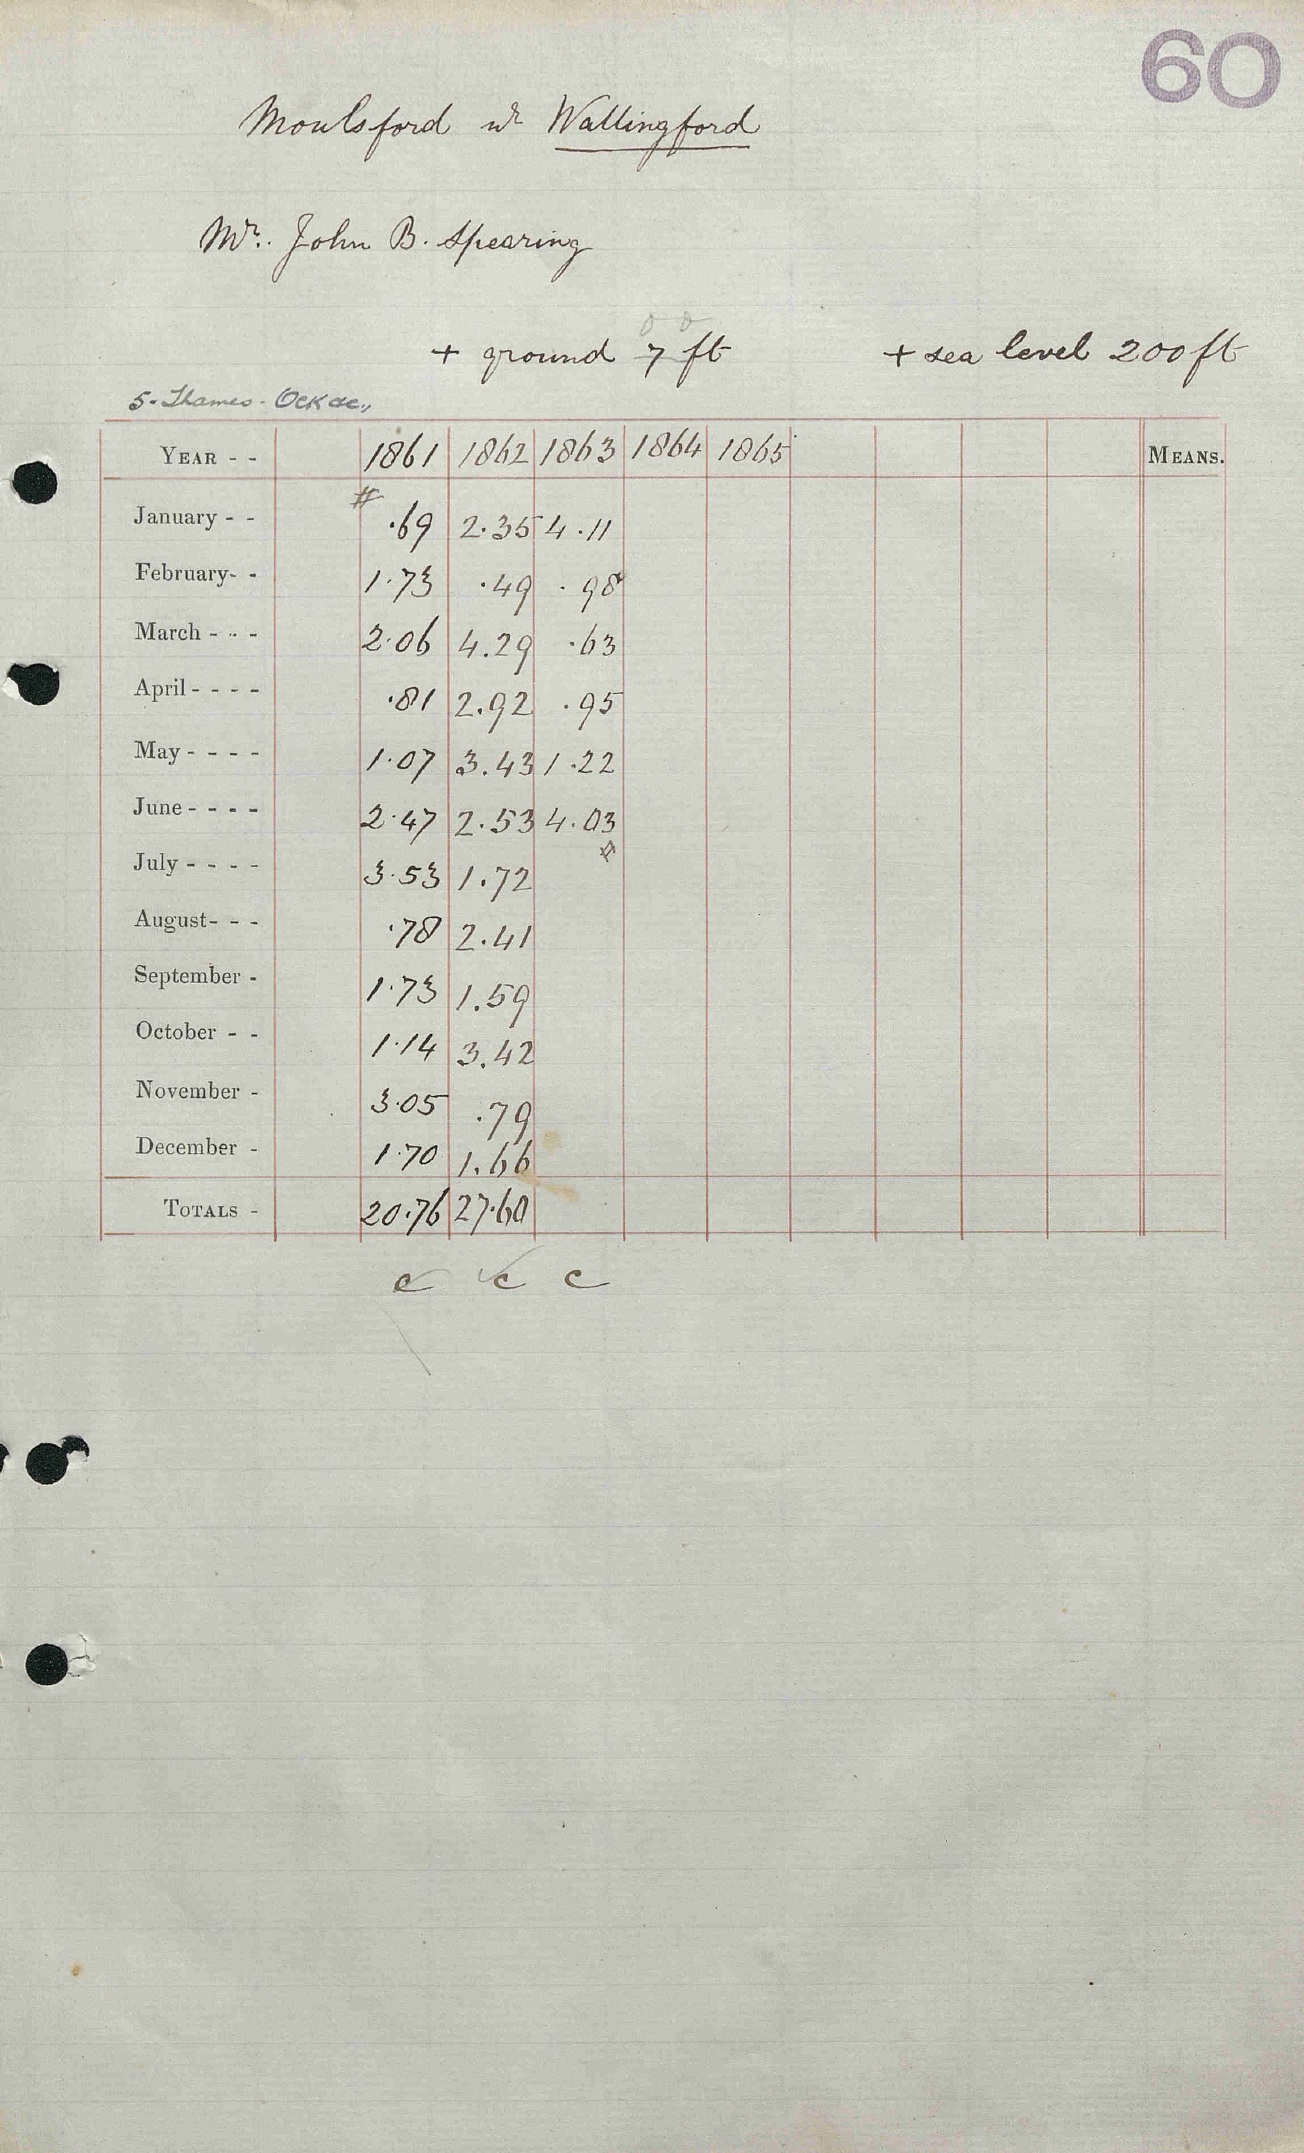 60
Moulsford nr Wallingford
Mr. John B. Spearing
+ ground 7 ft + sea level 200 ft
5. Thames - Ock &c.,
YEAR - - 1861 1862 1863 1864 1865 MEANS.
January - - # .69 2.35 4.11
February- - 1.73 .49 .98
March - - - 2.06 4.29 .63
April - - - - .81 2.92 .95
May - - - - 1.07 3.43 1.22
June - - - - 2.47 2.53 4.03
July - - - - 3.53 1.72
August- - - .78 2.41
September - 1.73 1.59
October - - 1.14 3.42
November - 3.05 .79
December - 1.70 1.66
TOTALS - 20.76 27.60
c c c